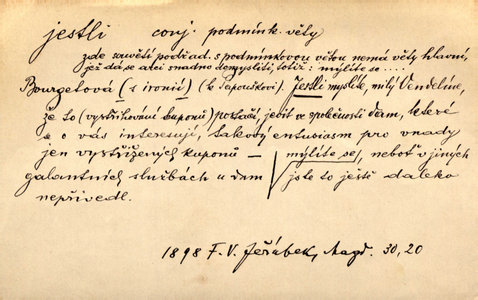 jestli conj. podmínk. věty
zde souvětí podřad. s podmínkovou větou nemá věty hlavní,
jež dá se arci snadno domysliti, totiž: mýlíte se ....
Bourgetová (s ironií) (k Papouškovi). Jestli myslíte, milý Vendelíne,
že to (vystřihování kuponů) postačí, jediť ve společnosti dam, které
se o vás interesují, takový entusiasm pro vnady
jen vystřižených kuponů – mýlíte se/, neboť v jiných
galantních službách u dam jste to ještě daleko
nepřivedl.
1898 F. V. Jeřábek, Magd. 30, 20